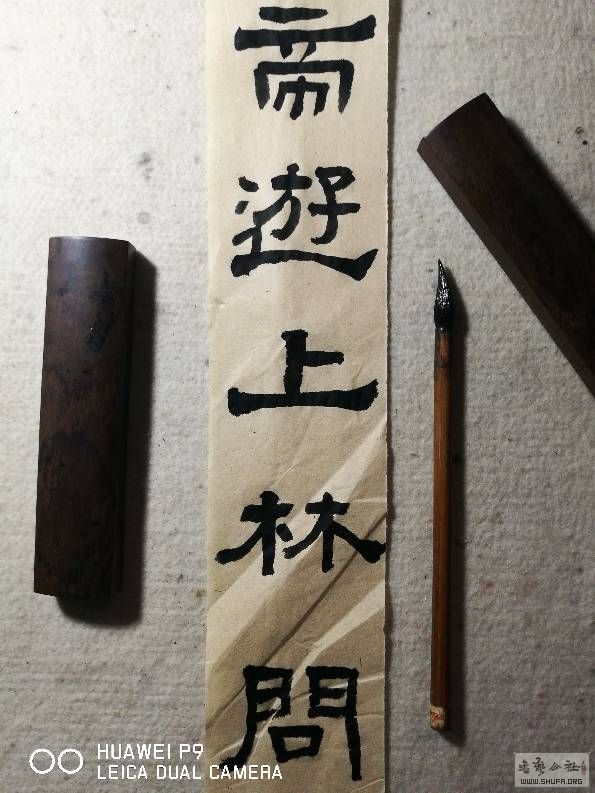 帝遊上林問
HUAWEI P9
LEICA DUAL CAMERA
书艺公社
WWW.SHUFA.ORG